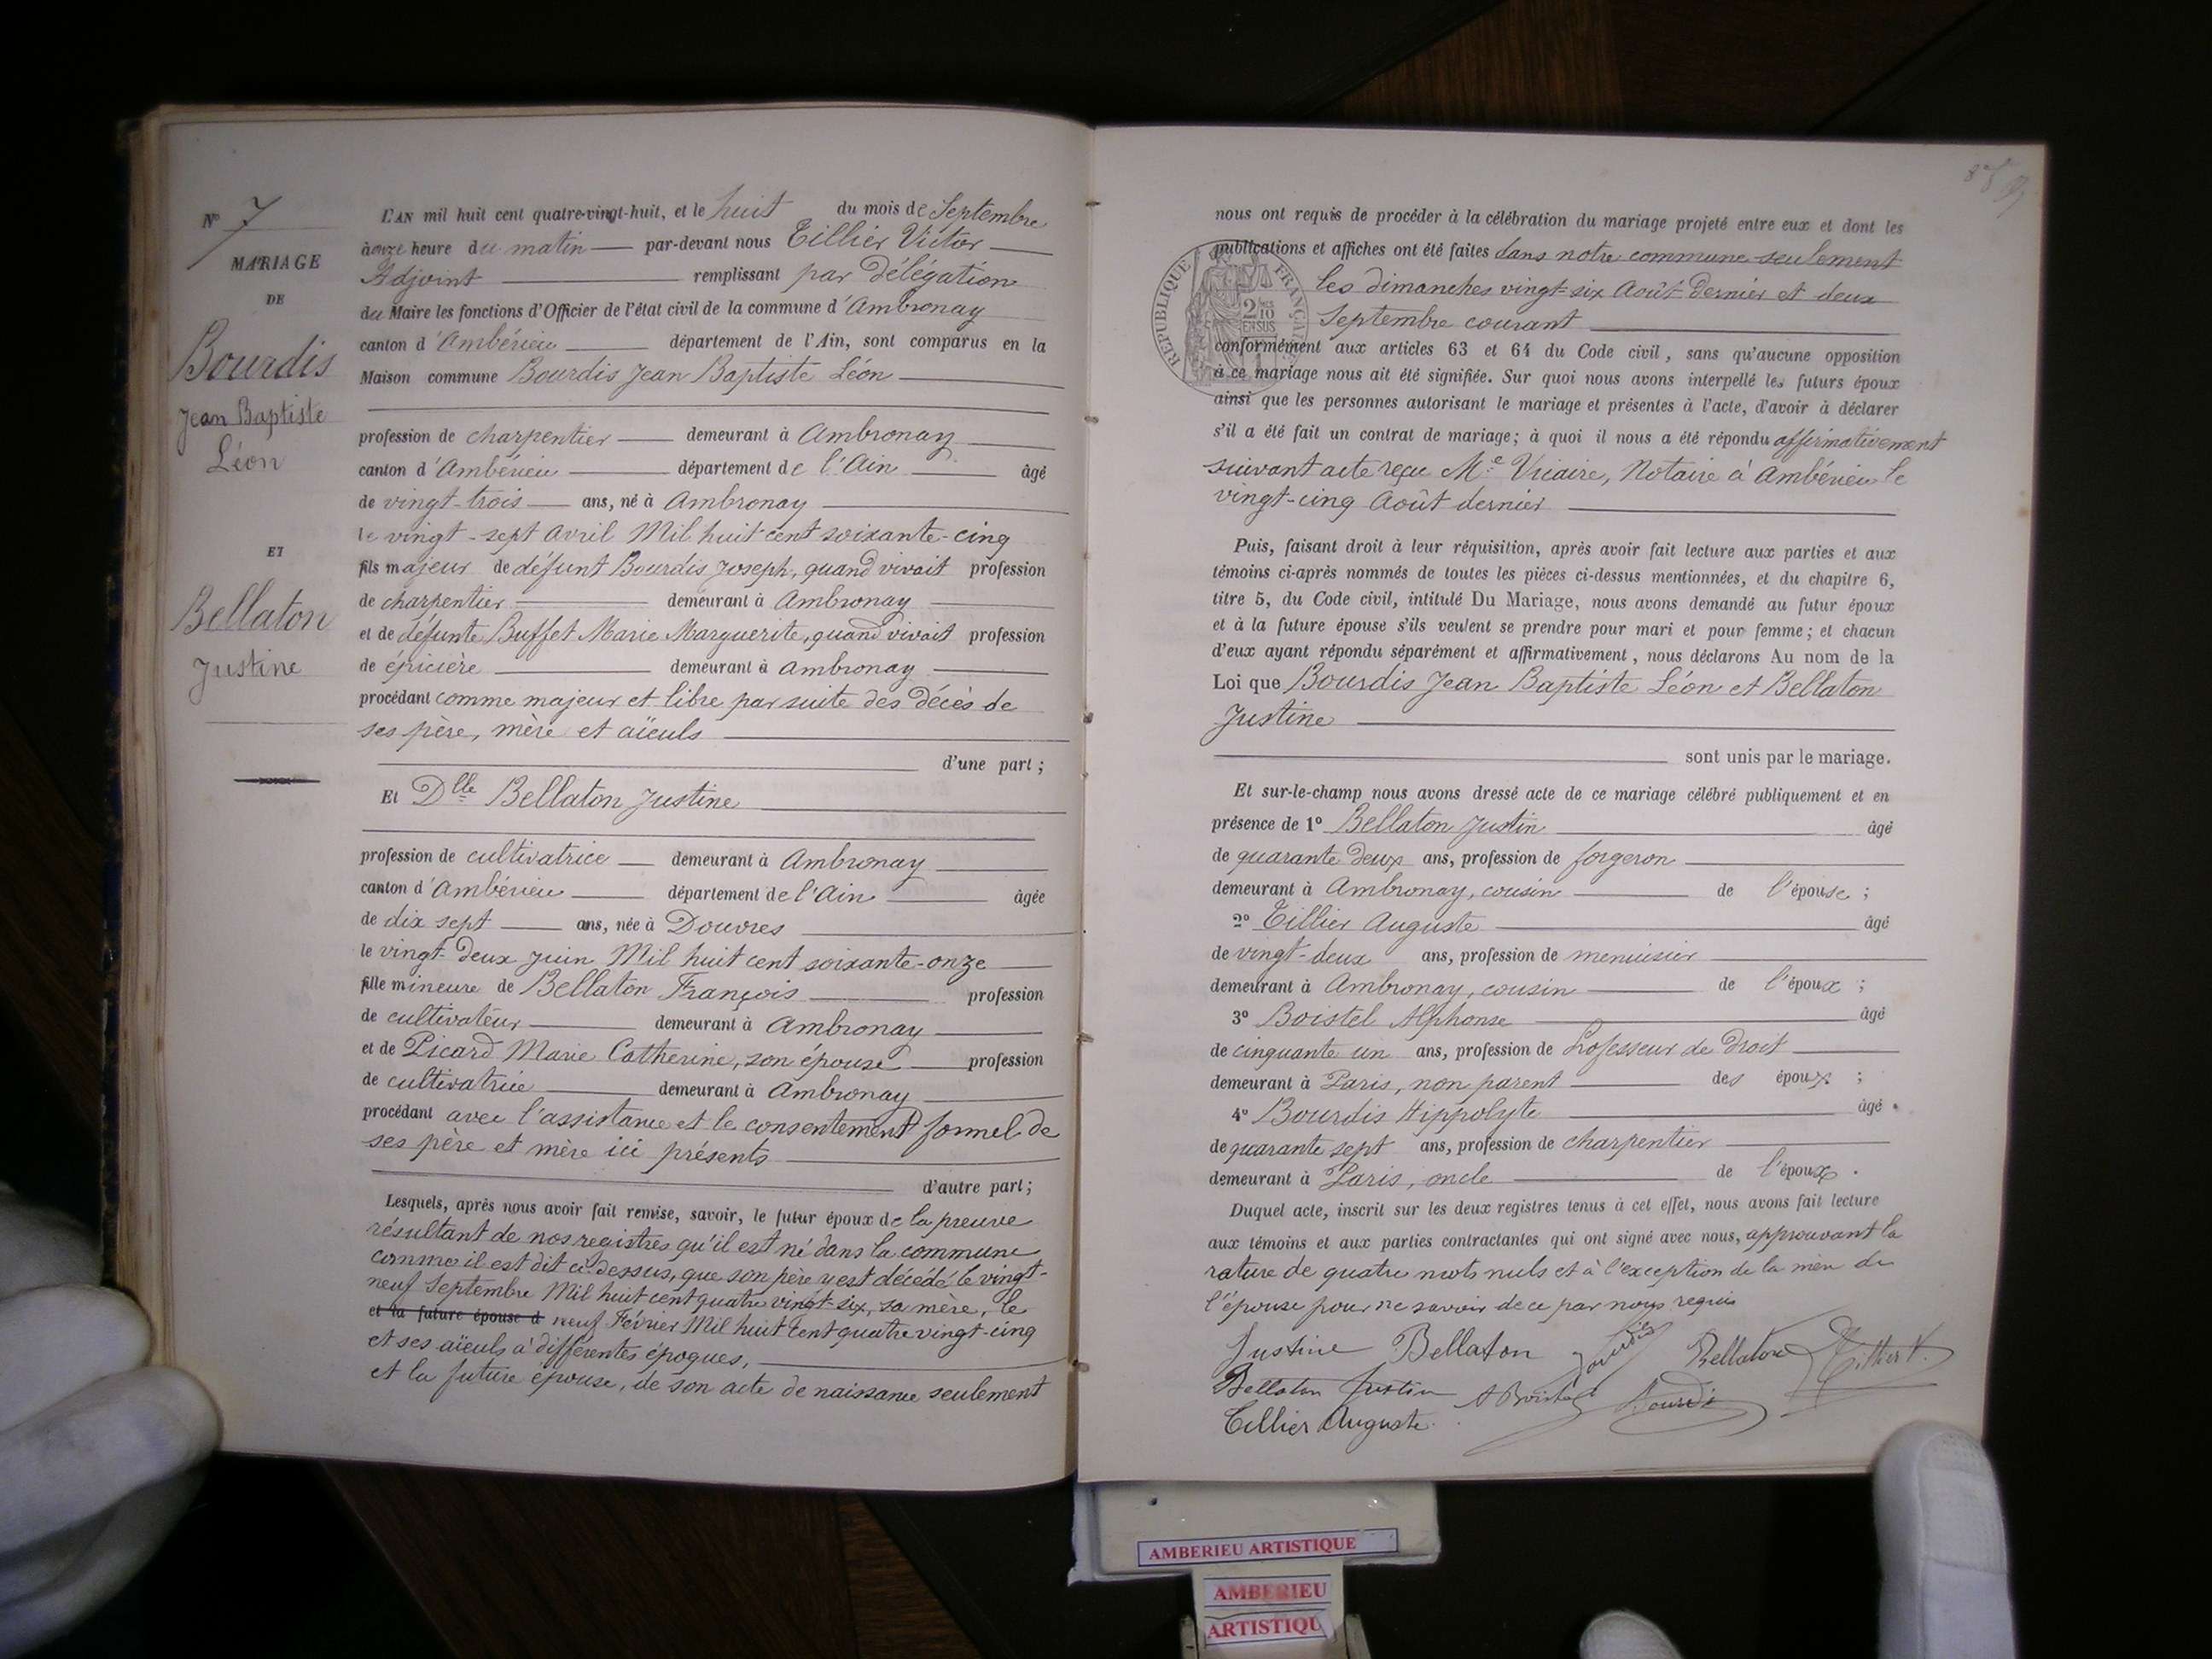 N° 7
MARIAGE
DE
Bourdis
Jean Baptiste
Léon
ET
Bellaton
Justine
L'AN mil huit cent quatre-vingt-huit, et le huit du mois de Septembre
à onze heure du matin par-devant nous Tillier Victor
Adjoint remplissant par Délégation
du Maire les fonctions d'Officier de l'état civil de la commune d'Ambronay
canton d'Ambérieu département de l'Ain, sont comparus en la
Maison commune Bourdis Jean Baptiste Léon
profession de charpentier demeurant à Ambronay
canton d'Ambérieu département de l'Ain âgé
de vingt-trois ans, né à Ambronay
le vingt-sept Avril Mil huit cent soixante-cinq
fils majeur de défunt Bourdis Joseph, quand vivait profession
de charpentier demeurant à Ambronay
et de défunte Buffet Marie Marguerite, quand vivait profession
de épicière demeurant à Ambronay
procédant comme majeur et libre par suite des décès de
ses père, mère et aïeuls
d'une part;
Et Dlle Bellaton Justine
profession de cultivatrice demeurant à Ambronay
canton d'Ambérieu département de l'Ain âgée
de dix sept ans, née à Douvres
le vingt-deux Juin Mil huit cent soixante-onze
fille mineure de Bellaton François profession
de cultivateur demeurant à Ambronay
et de Picard Marie Catherine, son épouse profession
de cultivatrice demeurant à Ambronay
procédant avec l'assistance et le consentement formel de
ses père et mère ici présents
d'autre part;
Lesquels, après nous avoir fait remise, savoir, le futur époux de la preuve
résultant de nos registres qu'il est né dans la commune
comme il est dit ci-dessus, que son père y est décédé le vingt-
neuf Septembre Mil huit cent quatre vingt-six, sa mère, le
et la future épouse d neuf Février Mil huit cent quatre vingt-cinq
et ses aïeuls à différentes époques,
et la future épouse, de son acte de naissance seulement
nous ont requis de procéder à la célébration du mariage projeté entre eux et dont les
publications et affiches ont été faites dans notre commune seulement
les dimanches vingt-six Août dernier et deux
Septembre courant
RÉPUBLIQUE FRANÇAISE
2/10 EN SUS
conformément aux articles 63 et 64 du Code civil, sans qu'aucune opposition
à ce mariage nous ait été signifiée. Sur quoi nous avons interpellé les futurs époux
ainsi que les personnes autorisant le mariage et présentes à l'acte, d'avoir à déclarer
s'il a été fait un contrat de mariage; à quoi il nous a été répondu affirmativement
suivant acte reçu Me Vicaire, Notaire à Ambérieu le
vingt-cinq Août dernier
Puis, faisant droit à leur réquisition, après avoir fait lecture aux parties et aux
témoins ci-après nommés de toutes les pièces ci-dessus mentionnées, et du chapitre 6,
titre 5, du Code civil, intitulé Du Mariage, nous avons demandé au futur époux
et à la future épouse s'ils veulent se prendre pour mari et pour femme; et chacun
d'eux ayant répondu séparément et affirmativement, nous déclarons Au nom de la
Loi que Bourdis Jean Baptiste Léon et Bellaton
Justine
sont unis par le mariage.
Et sur-le-champ nous avons dressé acte de ce mariage célébré publiquement et en
présence de 1° Bellaton Justin âgé
de quarante deux ans, profession de forgeron
demeurant à Ambronay, cousin de l'épouse;
2° Tillier Auguste âgé
de vingt-deux ans, profession de menuisier
demeurant à Ambronay, cousin de l'époux;
3° Boistel Alphonse âgé
de cinquante un ans, profession de Professeur de Droit
demeurant à Paris, non parent des époux;
4° Bourdis Hippolyte âgé
de quarante sept ans, profession de charpentier
demeurant à Paris, oncle de l'époux.
Duquel acte, inscrit sur les deux registres tenus à cet effet, nous avons fait lecture
aux témoins et aux parties contractantes qui ont signé avec nous, approuvant la
rature de quatre mots nuls et à l'exception de la mère de
l'épouse pour ne savoir de ce par nous requis
Justine Bellaton Bourdis Bellaton Tillier V.
Bellaton Justin A Boistel Bourdis
Tillier Auguste
AMBERIEU ARTISTIQUE
AMBERIEU
ARTISTIQU